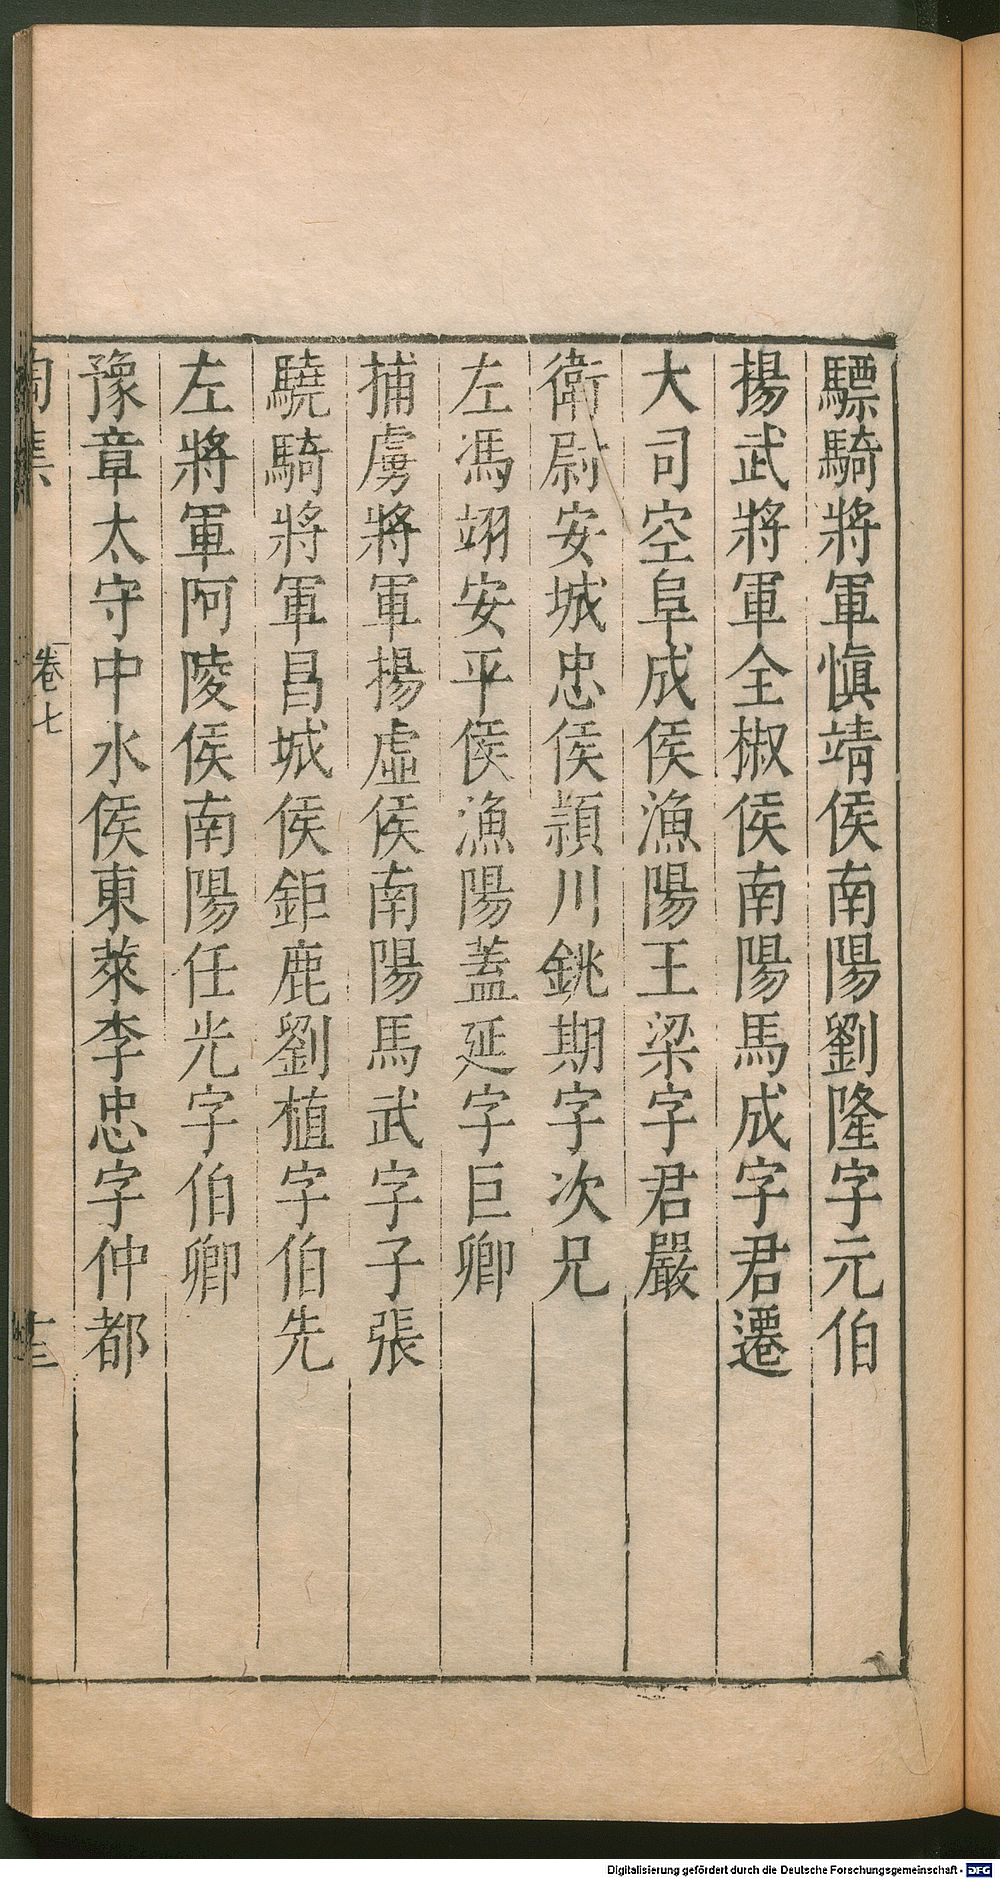 驃騎將軍慎靖侯南陽劉隆字元伯
揚武將軍全椒侯南陽馬成字君遷
大司空阜成侯漁陽王梁字君嚴
衛尉安城忠侯潁川銚期字次兄
左馮翊安平侯漁陽蓋延字巨卿
捕虜將軍揚虛侯南陽馬武字子張
驍騎將軍昌城侯鉅鹿劉植字伯先
左將軍阿陵侯南陽任光字伯卿
豫章太守中水侯東萊李忠字仲都
陶集 卷七
Digitalisierung gefördert durch die Deutsche Forschungsgemeinschaft - DFG